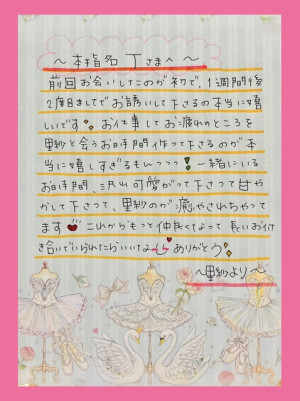 ～本指名 Tさまへ～
前回お会いしたのが初で、1週間後
2度目ましてでお誘いして下さるの本当に嬉
しいです。お仕事してお疲れのところを
里紗と会うお時間作って下さるのが本
当に嬉しすぎるもんっっっ!一緒にいる
お時間、沢山可愛がって下さって甘や
かして下さって、里紗のが癒やされちゃって
ます これからもっと仲良くなって長いお付
き合いでいられたらいいなぁ ありがとう
～里紗より～